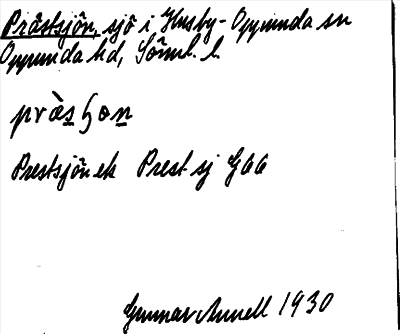 Prästsjön, sjö i Husby-Oppunda sn
Oppunda hd, Söml. l.
pràsꞔon
Prestsjön ek Prest sj G66
Gunnar Annell 1930